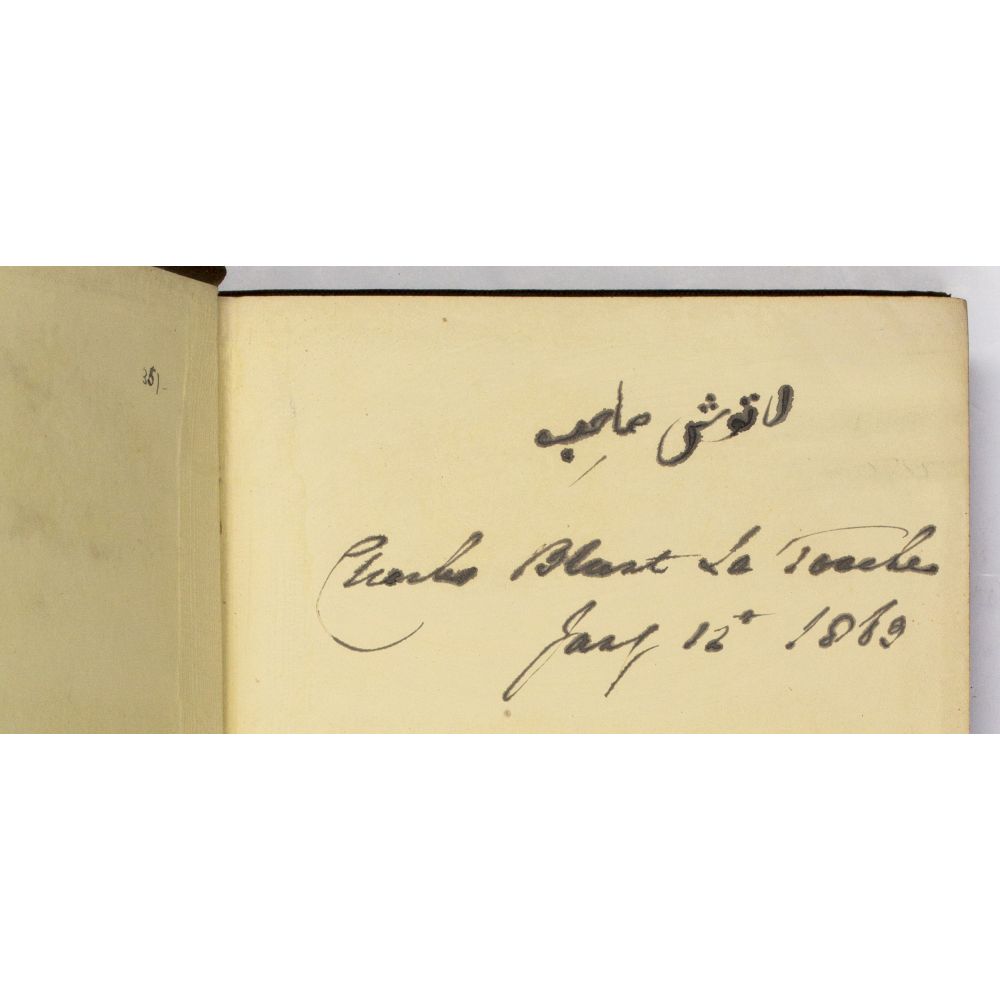 35/-
لاتوش صاحب
Charles Blunt La Touche
Jany 12th 1869